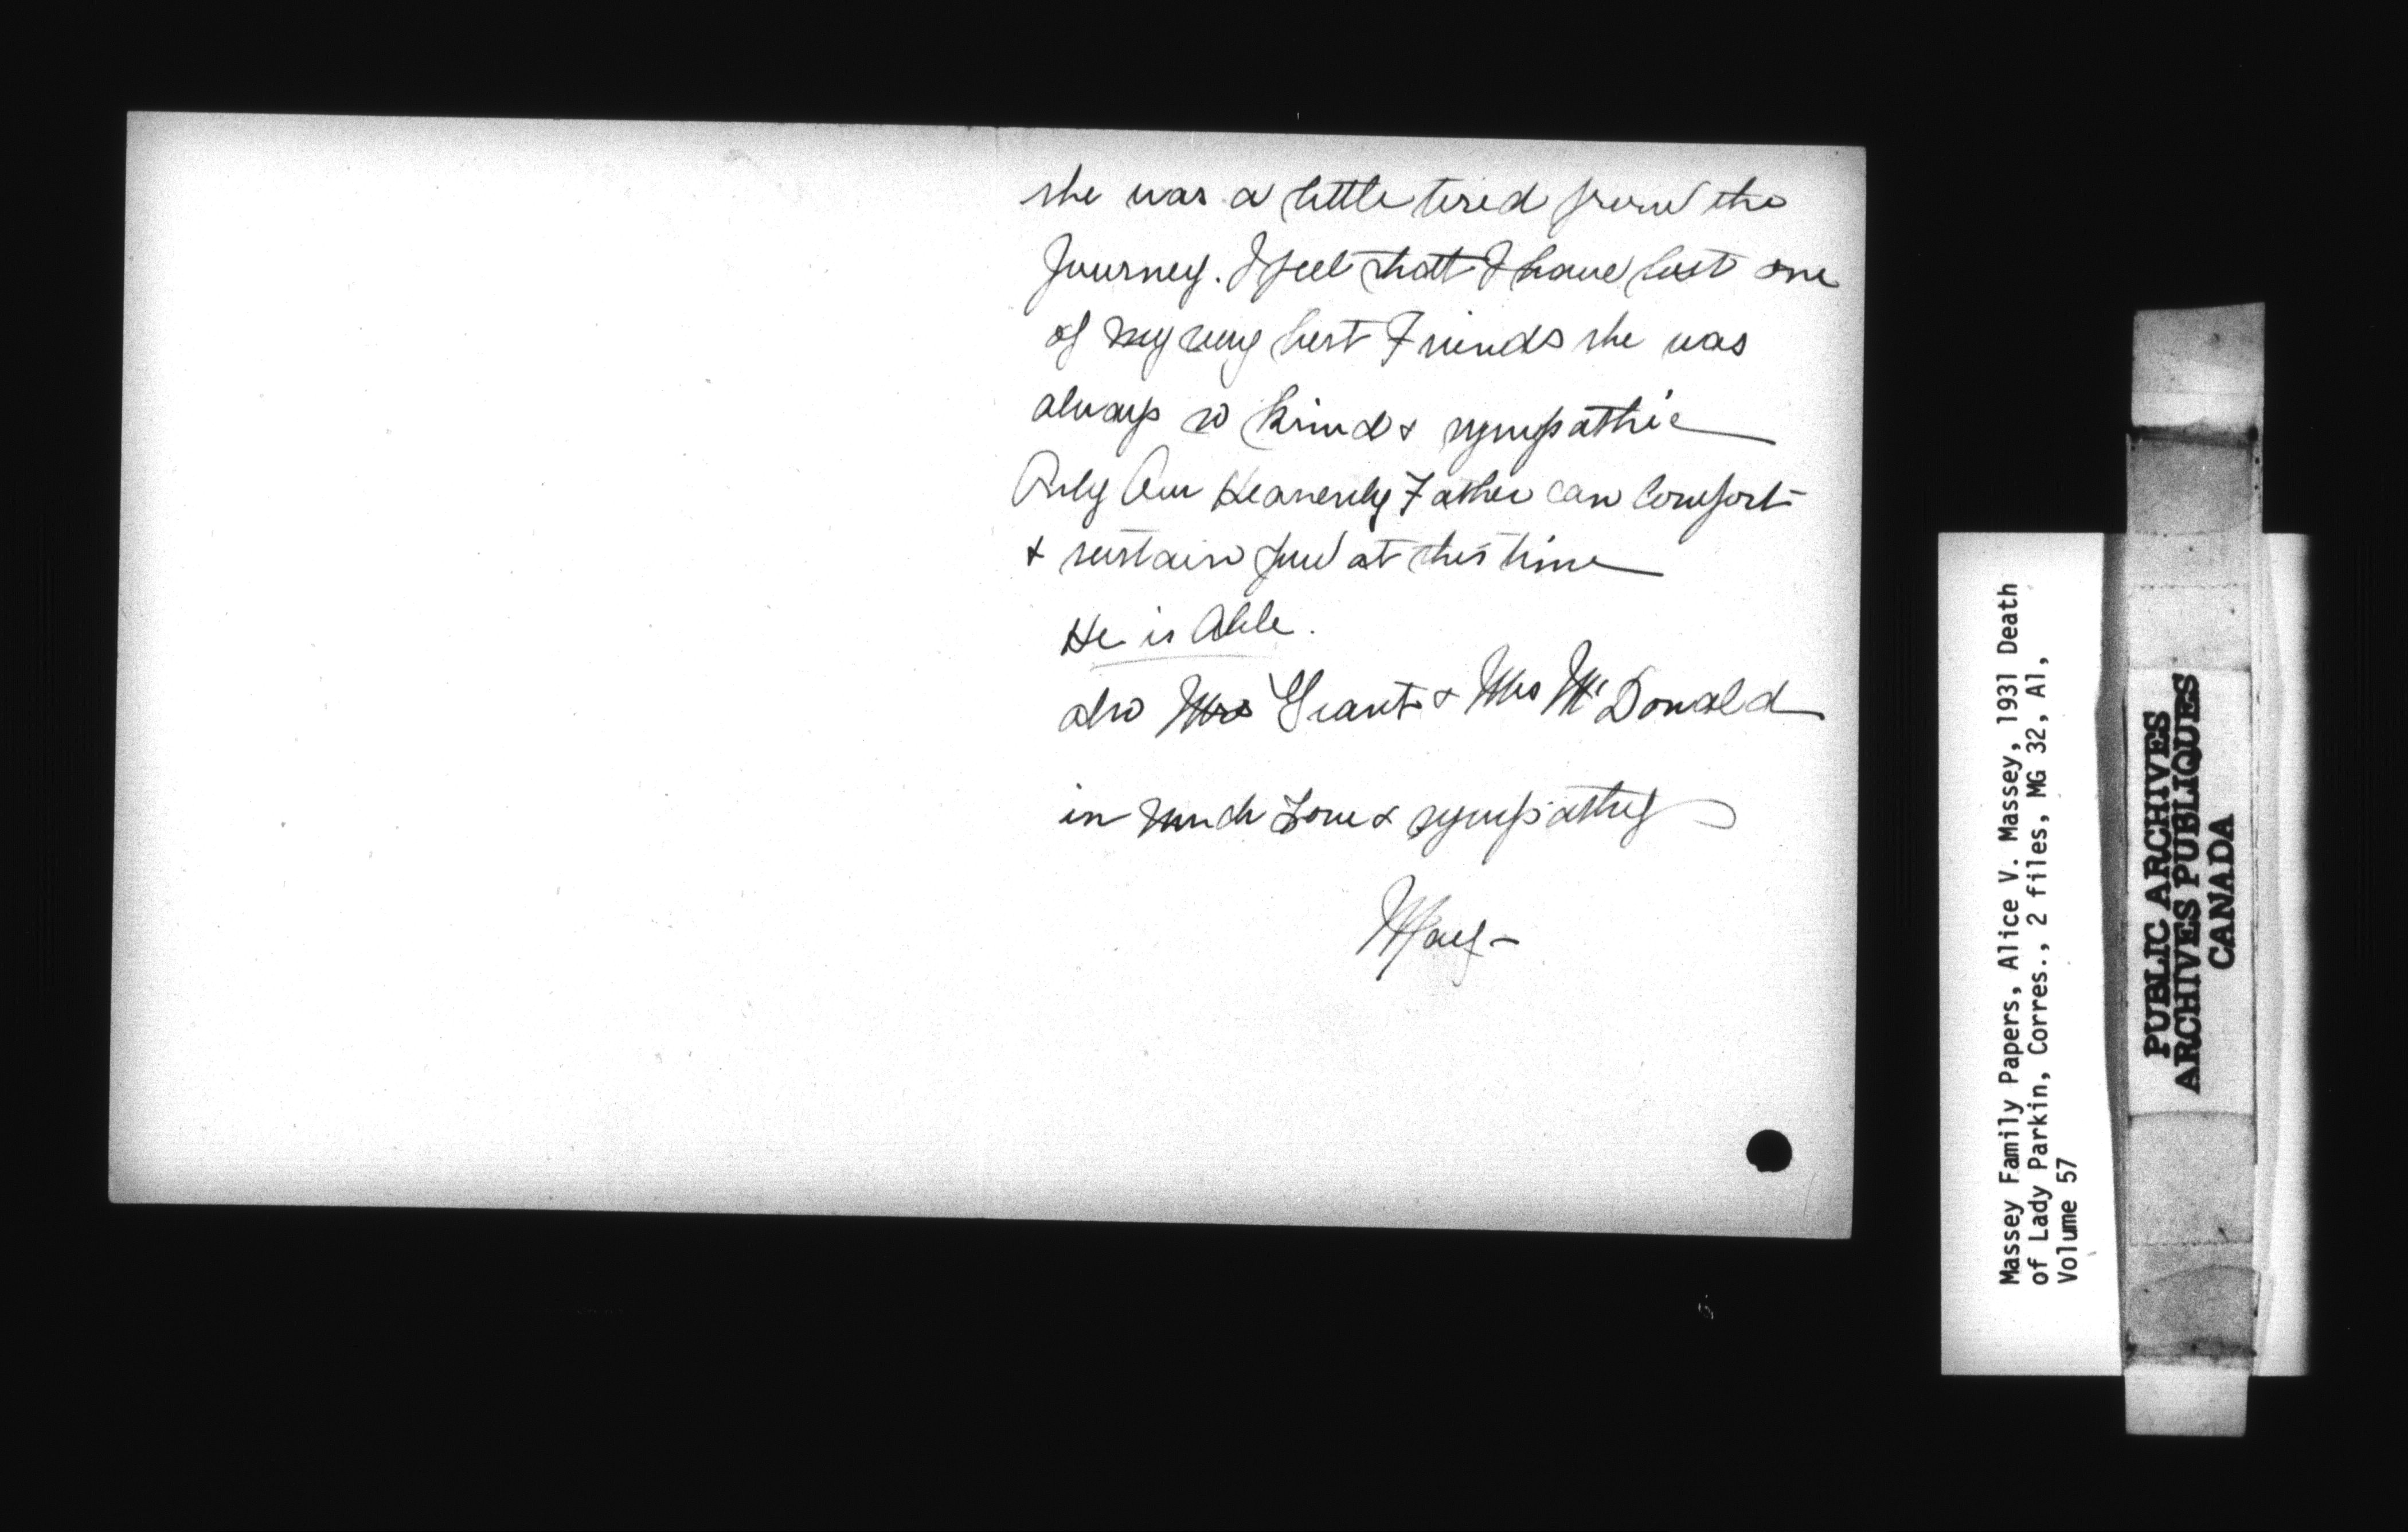 she was a little tired from the
Journey. I feel that I have lost one
of my very best Friends she was
always so kind & sympathic
Only Our Heavenly Father can Comfort
& sustain you at this time
He is Able.
also Mrs Grant & Mrs McDonald
in much Love & sympathy
May -
Massey Family Papers, Alice V. Massey, 1931 Death
of Lady Parkin, Corres., 2 files, MG 32, A1,
Volume 57
PUBLIC ARCHIVES
ARCHIVES PUBLIQUES
CANADA